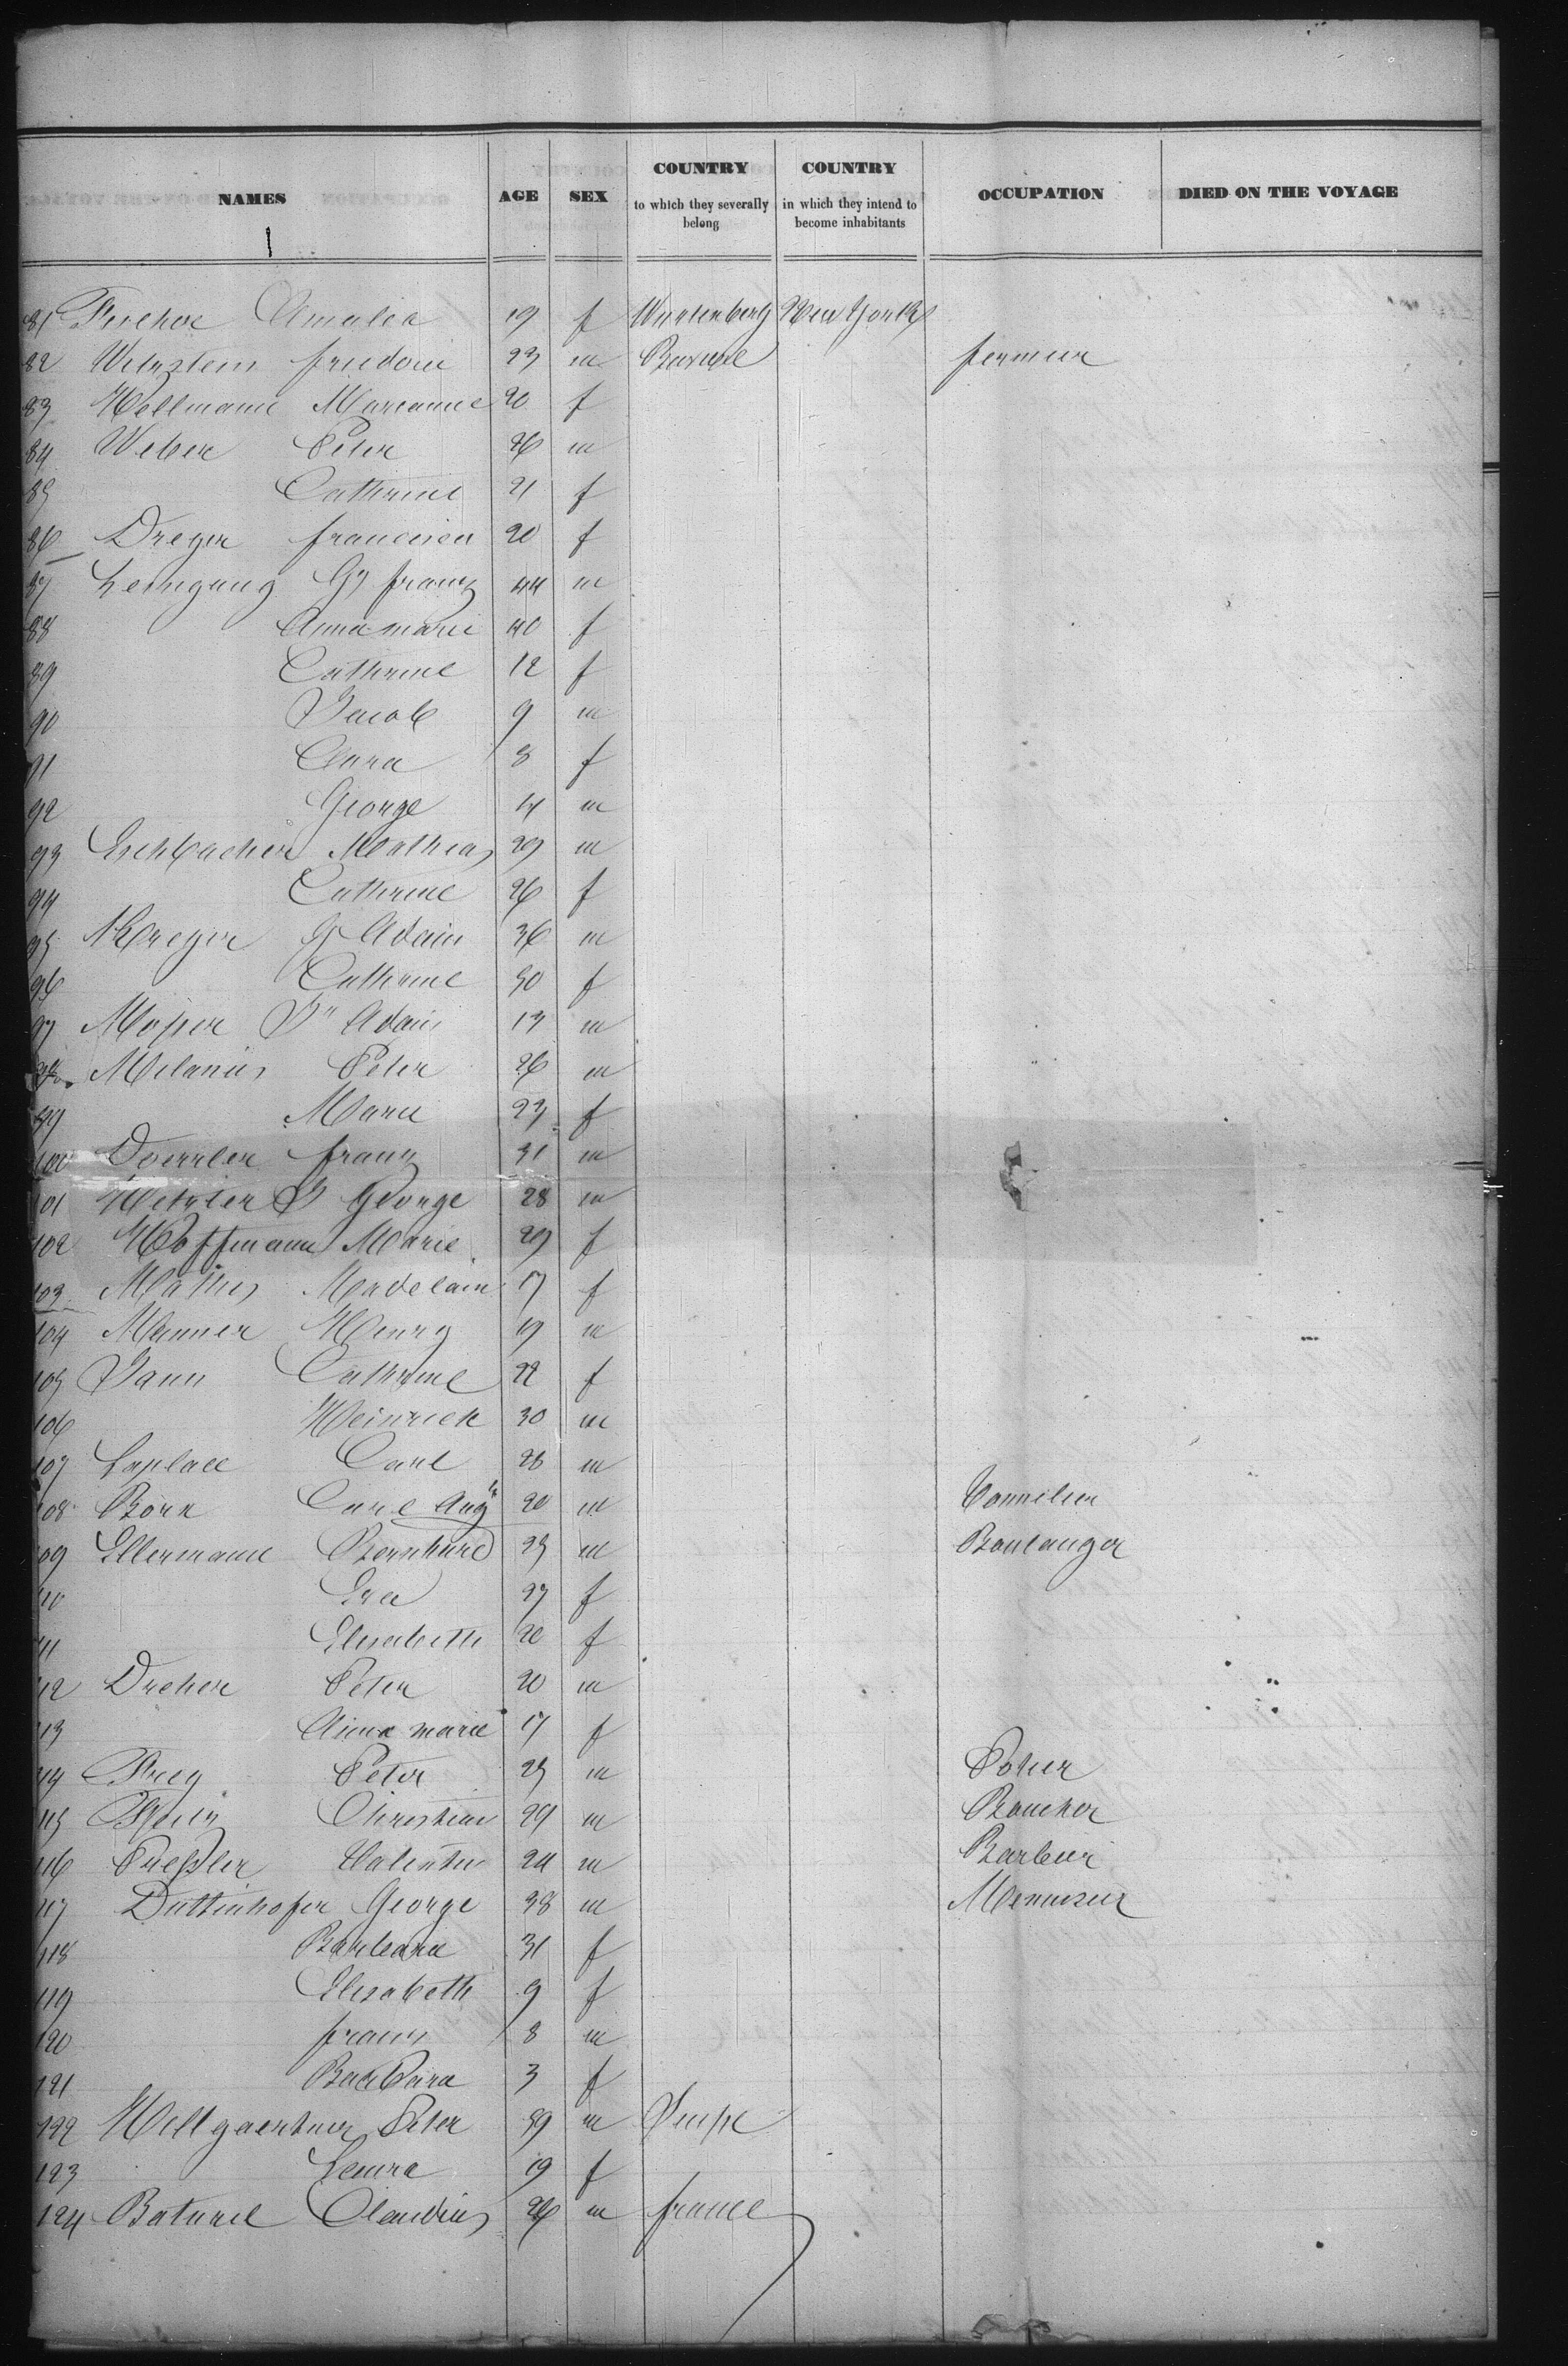 NAMES AGE SEX COUNTRY to which they severally belong COUNTRY in which they intend to become inhabitants OCCUPATION DIED ON THE VOYAGE
81 Amalia 19 f Wurtenberg New York
82 23 m fermier
83 Hellmann Marianne 20 f
84 Weber Peter 26 m
85 Catherine 21 f
86 Dreyer francisca 20 f
87 Leingang Gg franz 44 m
88 Anna marie 40 f
89 Catherine 12 f
90 Jacob 9 m
91 8 f
92 George 4 m
93 Eschbacher Mathias 29 m
94 Catherine 26 f
95 Kreyer Adam 36 m
96 Catherine 30 f
97 Moser Jn Adam 13 m
98 Melanius Peter 26 m
99 Marie 23 f
100 Doerrler franz 31 m
101 J George 28 m
102 Hoffmann Marie 29 f
103 Mathis Madelain 17 f
104 Manner Henry 19 m
105 Jann Catherine 22 f
106 Heinrich 30 m
107 Laplace Carl 28 m
108 Born Carl Aug 20 m Tonnelier
109 Ellermann Bernhard 25 m Boulanger
110 Eva 27 f
111 Elisabeth 20 f
112 Dreher Peter 20 m
113 Anna marie 17 f
114 Frey Peter 25 m Potier
115 Christian 29 m Boucher
116 Valentin 24 m Barbier
117 Duttenhofer George 38 m Menuisier
118 Barbara 31 f
119 Elisabeth 9 f
120 franz 8 m
121 Barbara 3 f
122 Hellgaertner Peter 59 m
123 19 f
124 Claudius 26 m france